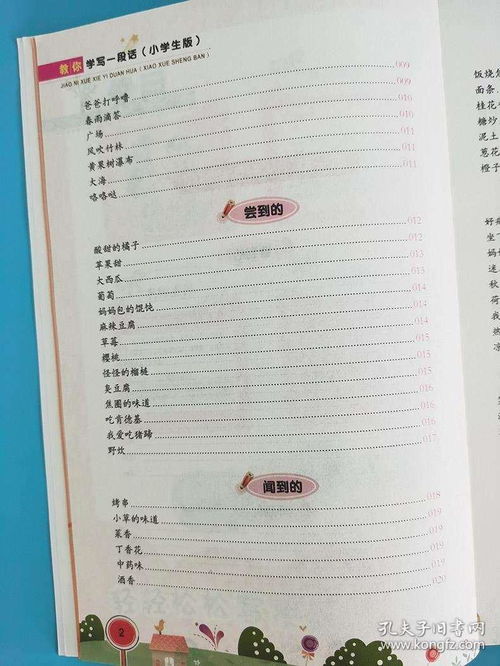 教你学写一段话（小学生版）
JIAO NI XUE XIE YI DUAN HUA（XIAO XUE SHENG BAN）
爸爸打呼噜 009
春雨滴答 009
广场 010
风吹竹林 010
黄果树瀑布 011
大海 011
咯咯哒 011
尝到的
酸甜的橘子 012
苹果甜 012
大西瓜 013
葡萄 013
妈妈包的馄饨 014
麻辣豆腐 014
草莓 014
樱桃 015
怪怪的榴梿 015
臭豆腐 015
焦圈的味道 016
吃肯德基 016
我爱吃猪蹄 016
野炊 017
闻到的
烤串 018
小草的味道 019
菜香 019
丁香花 019
中药味 019
酒香 020
2
饭烧焦
面条
桂花
糖炒
泥土
葱花
橙子
好
坐
妈妈
迷
秋
荷
我
热
凉
孔夫子旧书网
www.kongfz.com